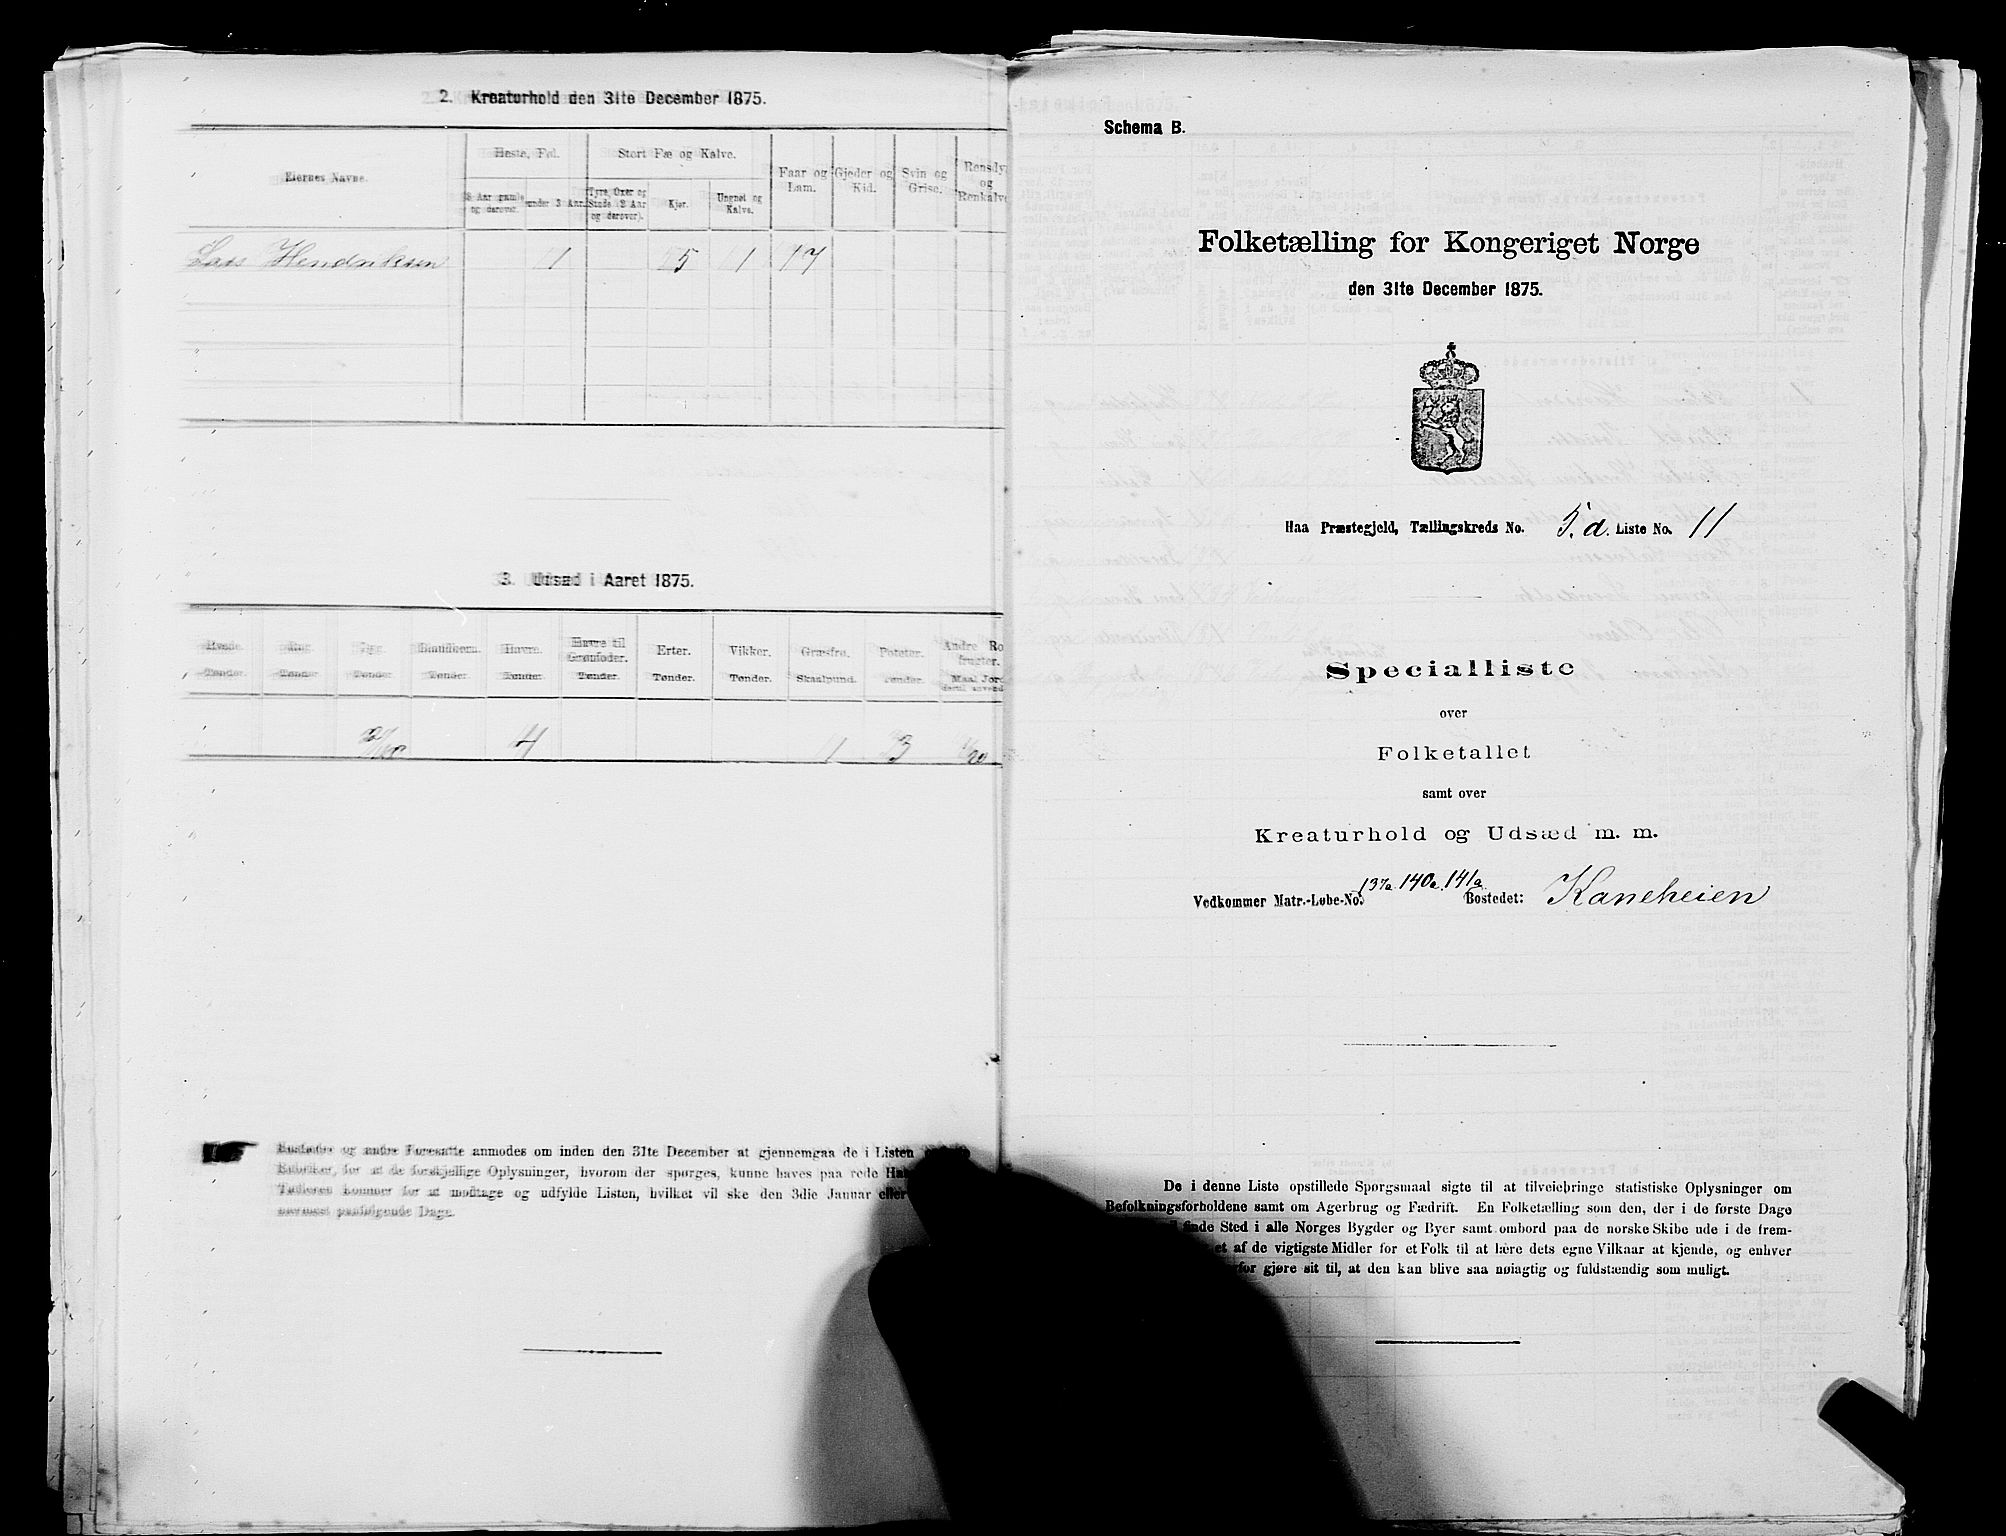 2. Kreaturhold den 31te December 1875.
Eiernes Navne.
Heste, Føl.
Stort Fæ og Kalve.
Faar og Lam.
Gjeder og Kid.
Svin og Grise.
Rensdy
og
Renkalve
3 Aar gamle og derover.
under 3 Aar.
Tyre, Oxer og Stude (2 Aar og derover).
Kjør.
Ungnøt og Kalve.
Lars Hendriksen 1 5 1 17
3. Udsæd i Aaret 1875.
Hvede. Rug. Byg. Blandkorn. Havre. Havre til Grønfoder. Erter. Vikker. Græsfrø. Poteter. Andre Ro
frugter.
Tønder. Tønder. Tønder. Tønder. Tønder. Tønder. Tønder. Tønder. Skaalpund. Tønder. Maal Jord
dertil anvend
4 1 3 1/20
Husfædre og andre Foresatte anmodes om inden den 31te December at gjennemgaa de i Listen
Rubriker, for at de forskjellige Oplysninger, hvorom der spørges, kunne haves paa rede Ha
Tælleren kommer for at modtage og udfylde Listen, hvilket vil ske den 3die Januar eller
nærmest paafølgende Dage.
Schema B.
Folketælling for Kongeriget Norge
den 31te December 1875.
Haa Præstegjeld, Tællingskreds No. 5.d. Liste No. 11
Specialliste
over
Folketallet
samt over
Kreaturhold og Udsæd m. m.
Vedkommer Matr.-Løbe-No. 137a 140a 141a Bostedet: Kaneheien
De i denne Liste opstillede Spørgsmaal sigte til at tilveiebringe statistiske Oplysninger om
Befolkningsforholdene samt om Agerbrug og Fædrift. En Folketælling som den, der i de første Dage
finde Sted i alle Norges Bygder og Byer samt ombord paa de norske Skibe ude i de frem-
et af de vigtigste Midler for et Folk til at lære dets egne Vilkaar at kjende, og enhver
for gjøre sit til, at den kan blive saa nøiagtig og fuldstændig som muligt.